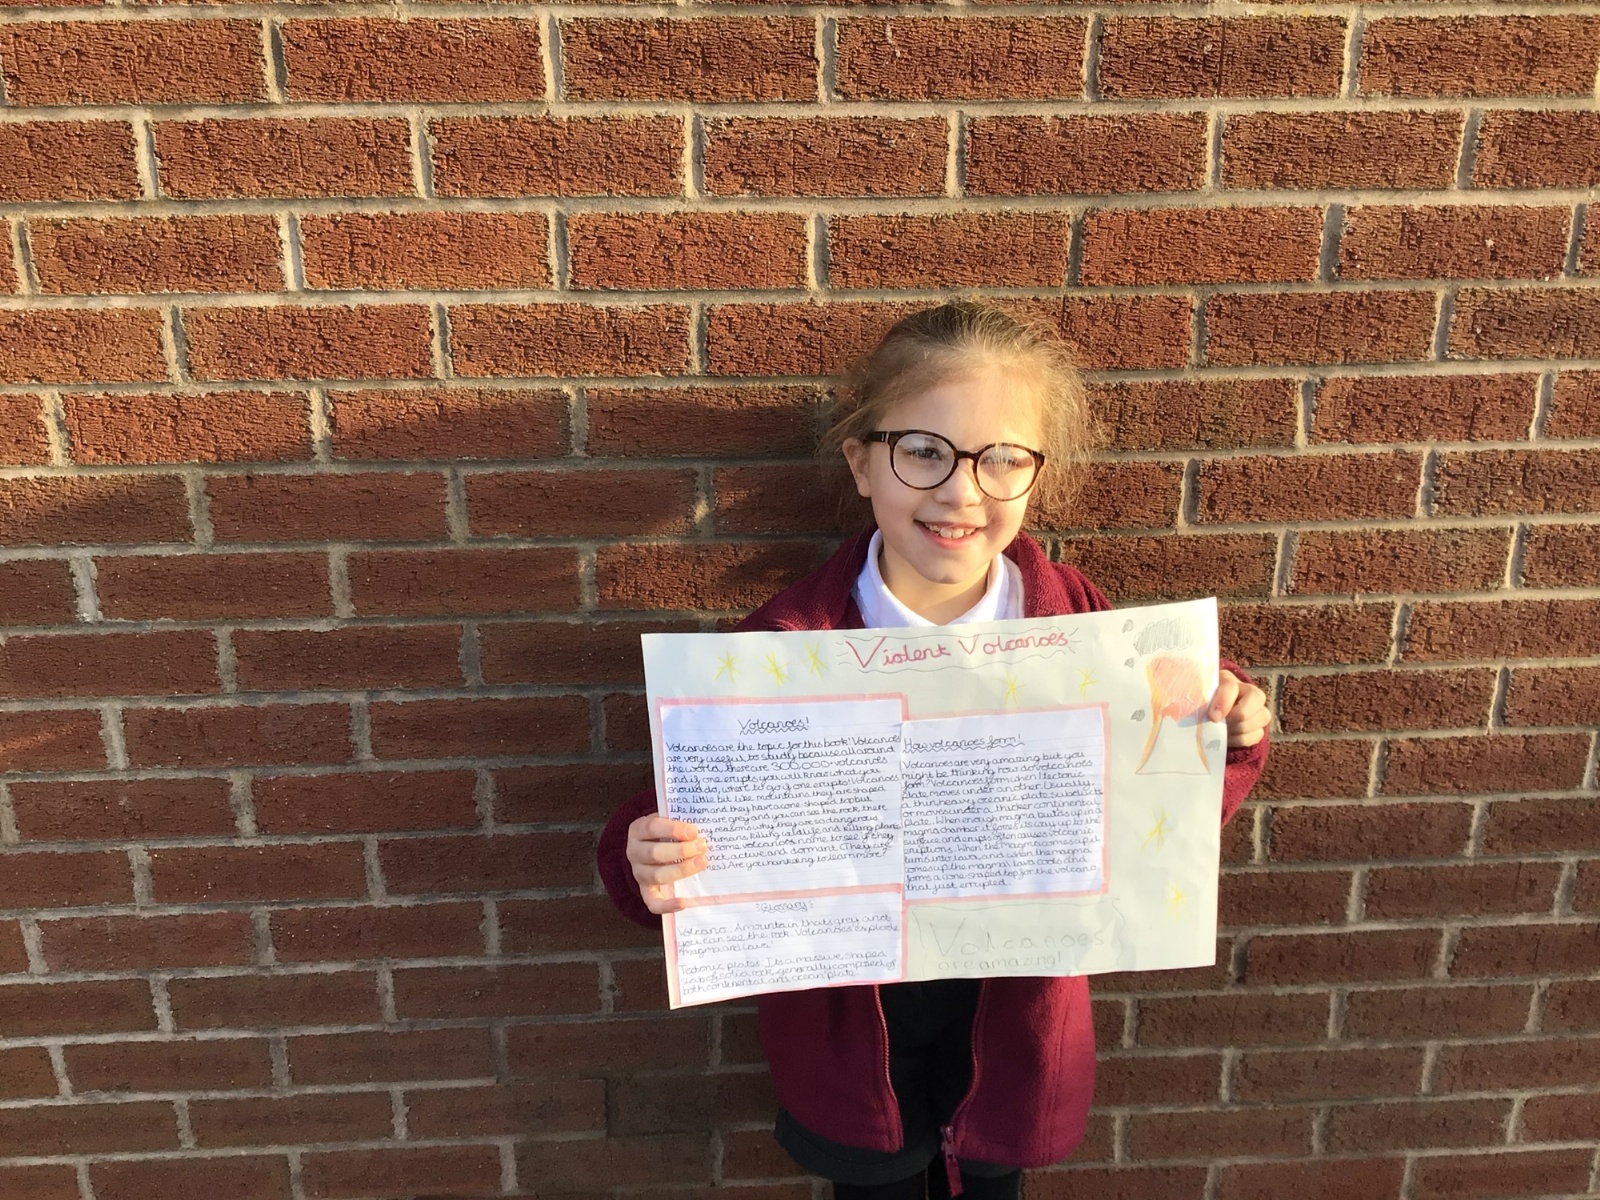 Violent Volcanoes
Volcanoes!
Volcanoes are the topic for this book! Volcanoes
are very useful to study because all around
the world, there are 300,000+ volcanoes
and if one erupts you will know what you
should do, where to go if one erupts! Volcanoes
are a little bit like mountains they are shaped
like them and they have a cone shaped top but
volcanoes are grey and you can see the rock. there
reasons why they are so dangerous
humans killing wildlife and killing plants
some volcanoes name to see if they
active and dormant. (They are
Are you hankering to learn more?
How volcanoes form!
Volcanoes are very amazing but you
might be thinking how do volcanoes
form? Volcanoes form when 1 tectonic
plate moves under another. Usually,
a thin, heavy oceanic plate subducts
or moves under a thicker continental
plate. When enough magma builds up in a
magma chamber it forces its way up to the
surface and erupts often causes volcanic
eruptions. When the magma comes up it
turns into lava, and when the magma
comes up the magma/lava cools and
forms a cone shaped top for the volcano
that just errupted.
Glossary:
Volcano: A mountain thats grey and
you can see the rock. Volcanoes explode
magma and lava!
Tectonic plates: Its a massive shaped
slab of solid rock generally composed of
both continental and ocean plate
Volcanoes
are amazing!